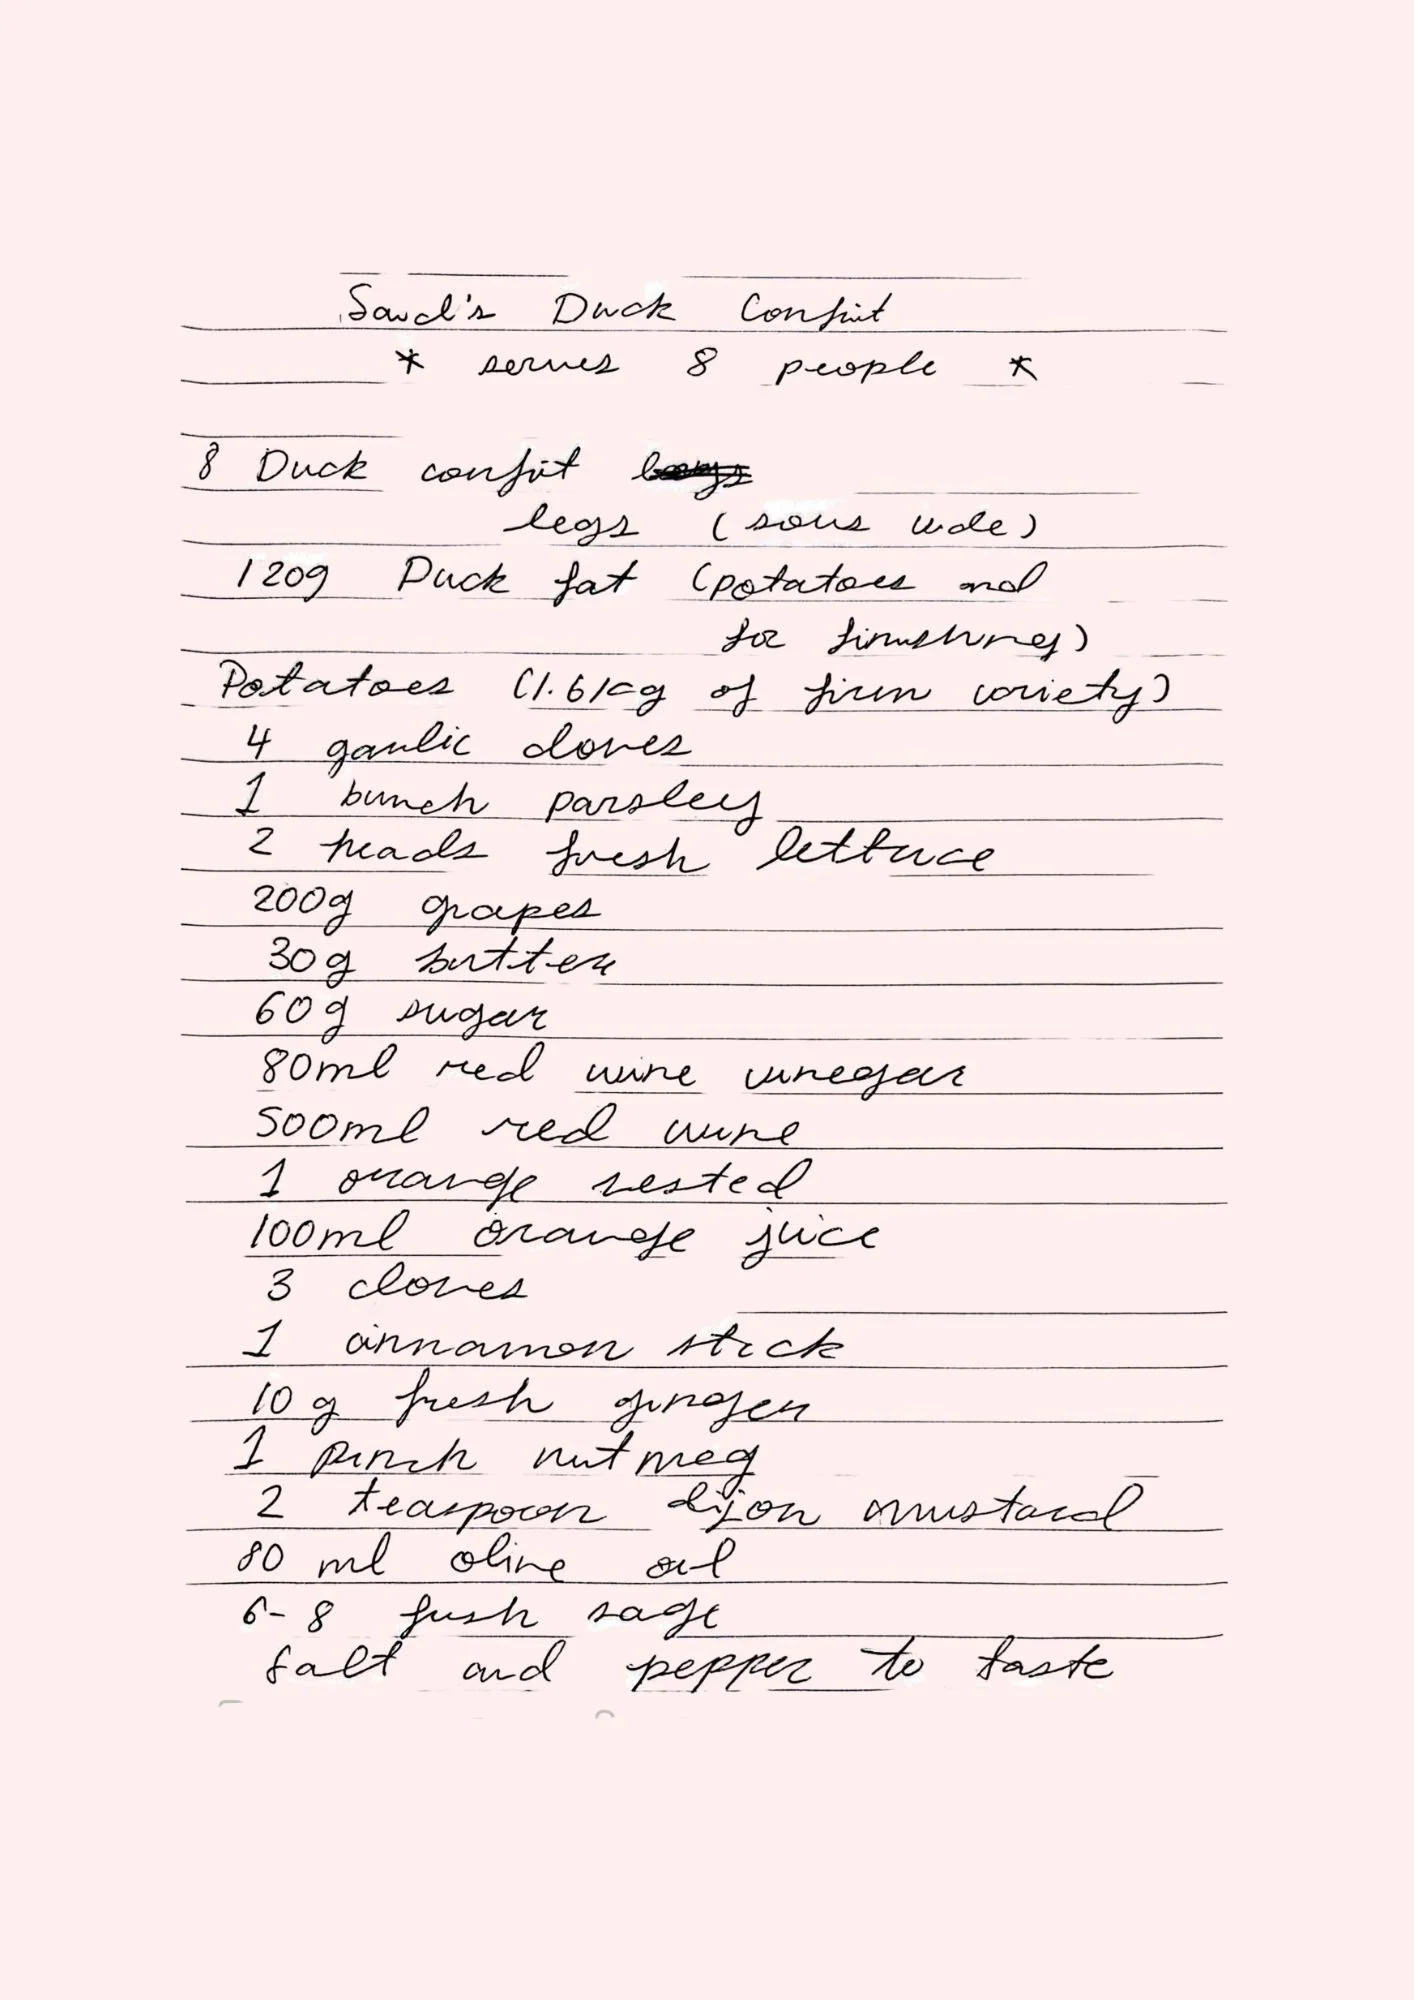 Saud's Duck Confit
* serves 8 people *
8 Duck confit
legs (sous vide)
120g Duck fat (potatoes and
for finishing)
Potatoes (1.6kg of firm variety)
4 garlic cloves
1 bunch parsley
2 heads fresh lettuce
200g grapes
30g butter
60g sugar
80ml red wine vinegar
500ml red wine
1 orange zested
100ml orange juice
3 cloves
1 cinnamon stick
10g fresh ginger
1 pinch nutmeg
2 teaspoon dijon mustard
80 ml olive oil
6-8 fresh sage
Salt and pepper to taste